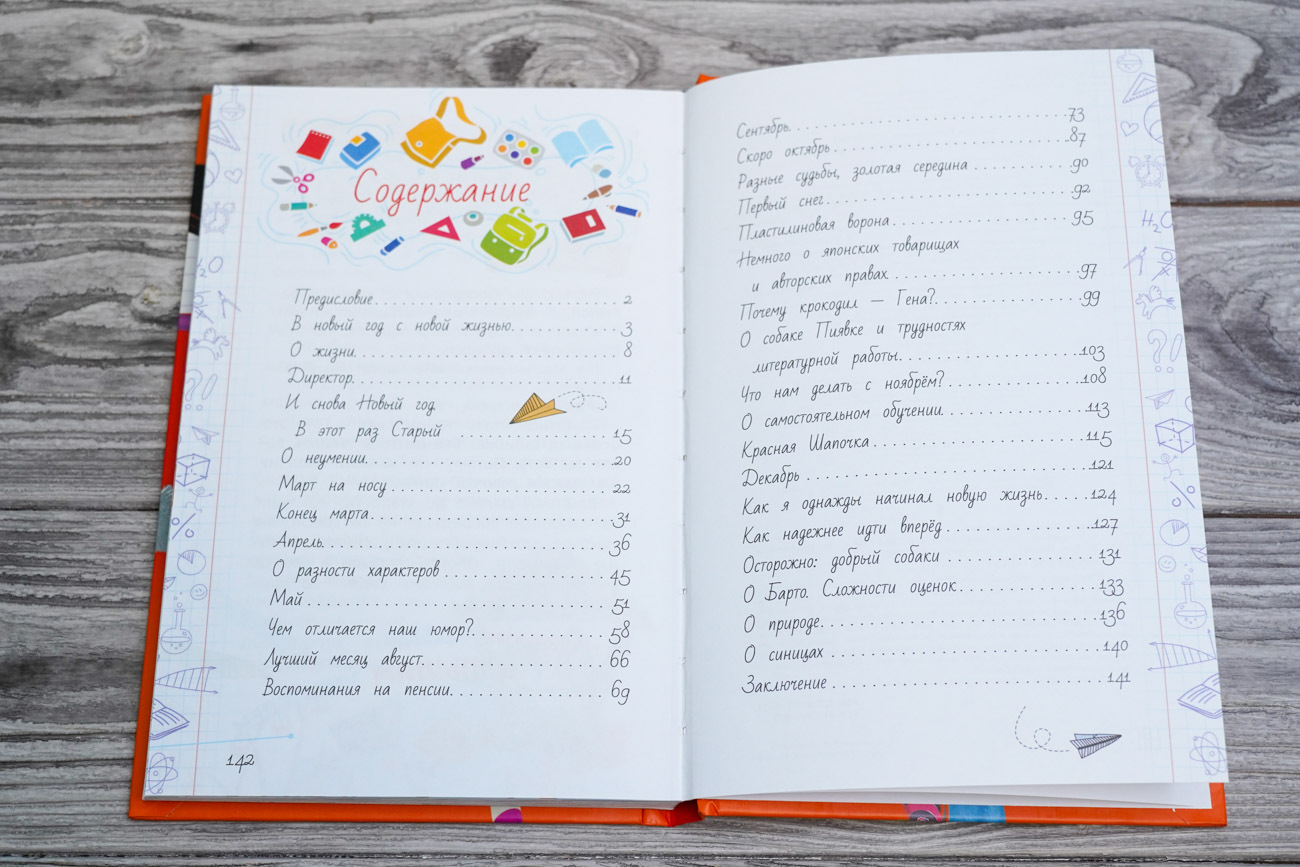 Содержание
Предисловие 2
В новый год с новой жизнью. 3
О жизни. 8
Директор. 11
И снова Новый год.
В этот раз Старый 15
О неумении. 20
Март на носу 22
Конец марта 31
Апрель. 36
О разности характеров 45
Май 51
Чем отличается наш юмор?. 58
Лучший месяц август. 66
Воспоминания на пенсии. 69
142
Сентябрь. 73
Скоро октябрь 87
Разные судьбы, золотая середина 90
Первый снег 92
Пластилиновая ворона 95
Немного о японских товарищах
и авторских правах. 97
Почему крокодил — Гена?. 99
О собаке Пиявке и трудностях
литературной работы. 103
Что нам делать с ноябрём? 108
О самостоятельном обучении. 113
Красная Шапочка 115
Декабрь 121
Как я однажды начинал новую жизнь. 124
Как надежнее идти вперёд 127
Осторожно: добрый собаки 131
О Барто. Сложности оценок 133
О природе. 136
О синицах 140
Заключение 141
H₂O